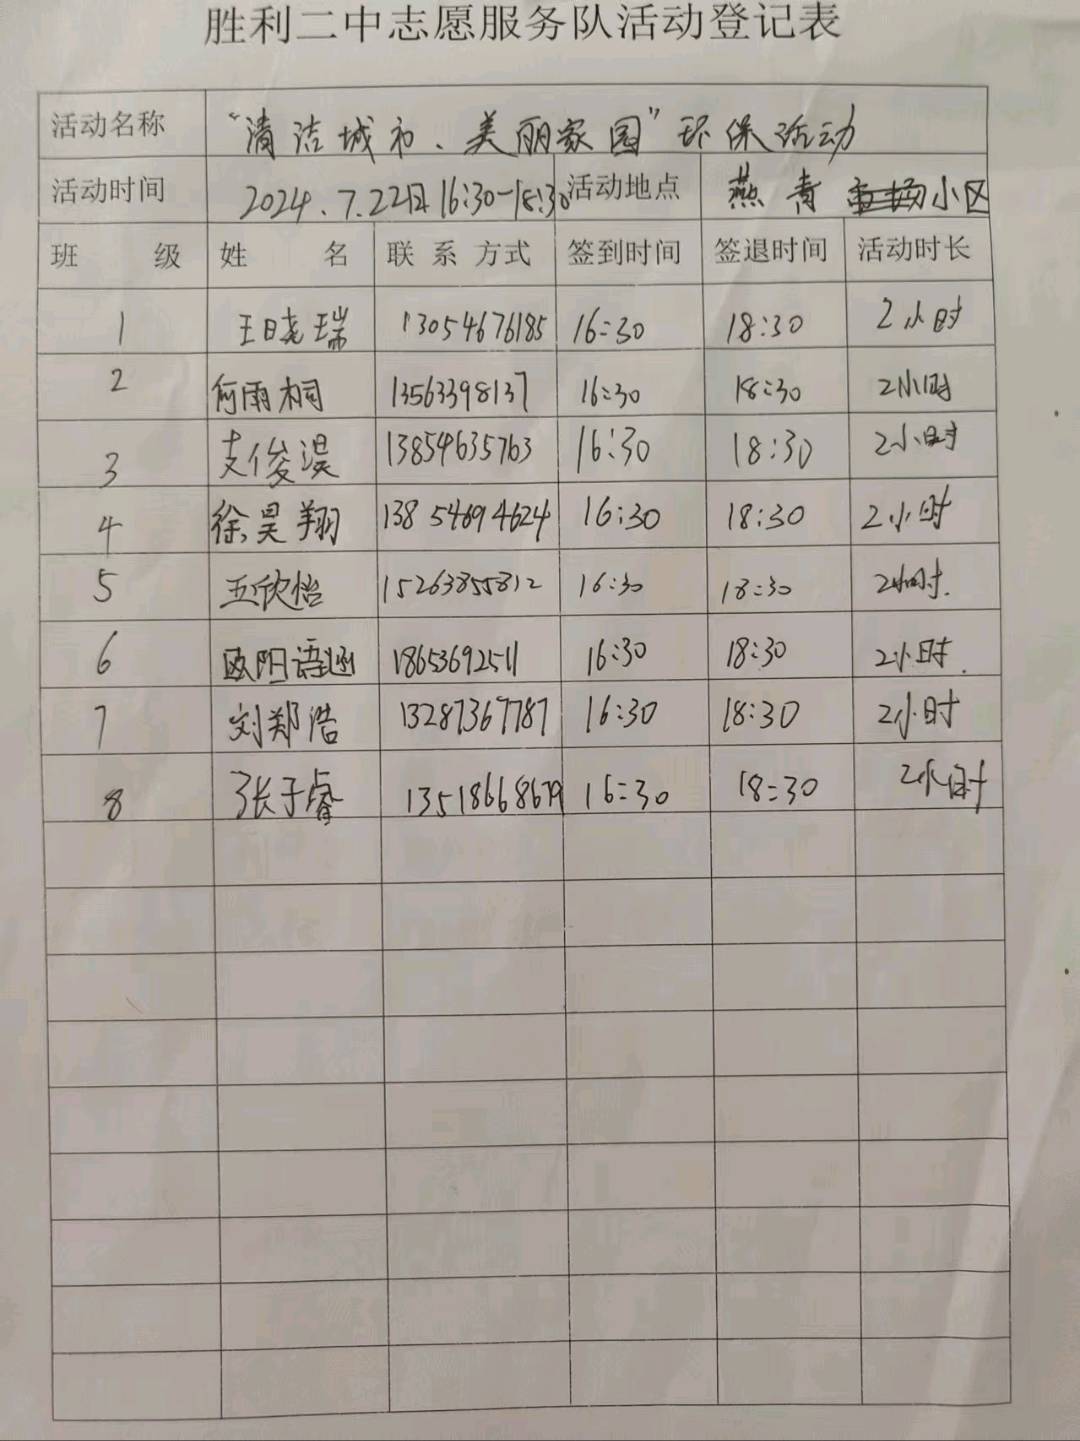 胜利二中志愿服务队活动登记表
活动名称 “清洁城市、美丽家园”环保活动
活动时间 2024.7.22日16:30-18:30 活动地点 燕青小区
班 级 姓 名 联系方式 签到时间 签退时间 活动时长
1 王晓瑞 13054676185 16:30 18:30 2小时
2 何雨桐 13563398137 16:30 18:30 2小时
3 支俊淏 13854635763 16:30 18:30 2小时
4 徐昊翔 13854694624 16:30 18:30 2小时
5 王欣怡 15263855812 16:30 18:30 2小时.
6 欧阳语涵 18653692511 16:30 18:30 2小时.
7 刘郑浩 13287367787 16:30 18:30 2小时
8 张子睿 13518668679 16:30 18:30 2小时